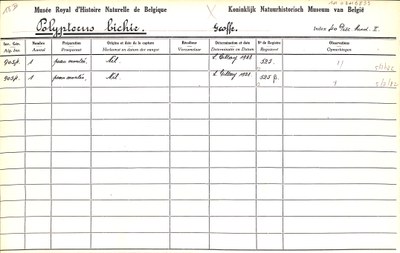 Musée Royal d'Histoire Naturelle de Belgique Koninklijk Natuurhistorisch Museum van België
Polypterus bichir. Geoffr.
Inv. Gén. Alg. Inv. Nombre Aantal Préparation Praeparaat Origine et date de la capture Herkomst en datum der vangst Récolteur Verzamelaar Détermination et date Determinatie en Datum No de Registre Register Observations Opmerkingen
90sp. 1 peau montée, Nil. 1888 525.
90sp. 1 peau montée, Nil. 1888 525 β.